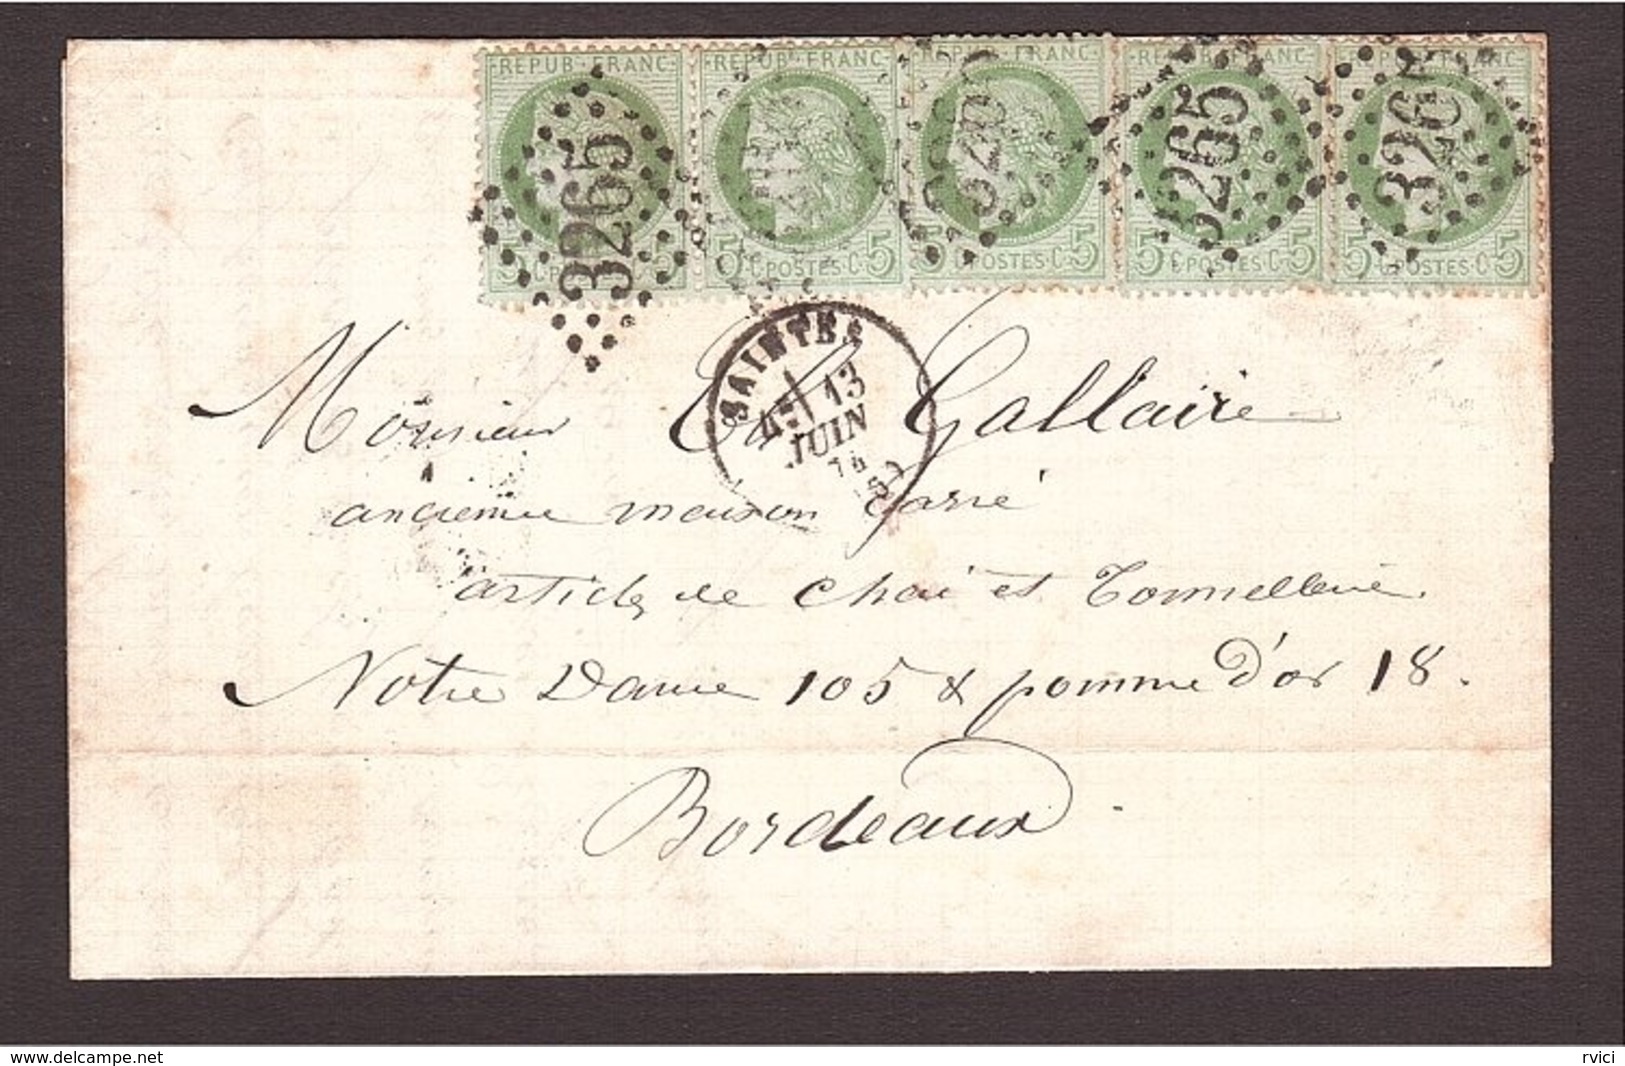 REPUB·FRANC REPUB·FRANC REPUB FRANC REPUB·FRANC FRANC
3265 326 3265 326
5 C 5 5 C·POSTES·C·5 5 C POSTES·C·5 5 C POSTES·C·5 5 C POSTES·C·5
SAINTES
13
JUIN
74
Monsieur Gallaire
ancienne maison Carré
articles de chai et Tonnellerie.
Notre Dame 105 & pomme d'or 18.
Bordeaux.
www.delcampe.net
rvici